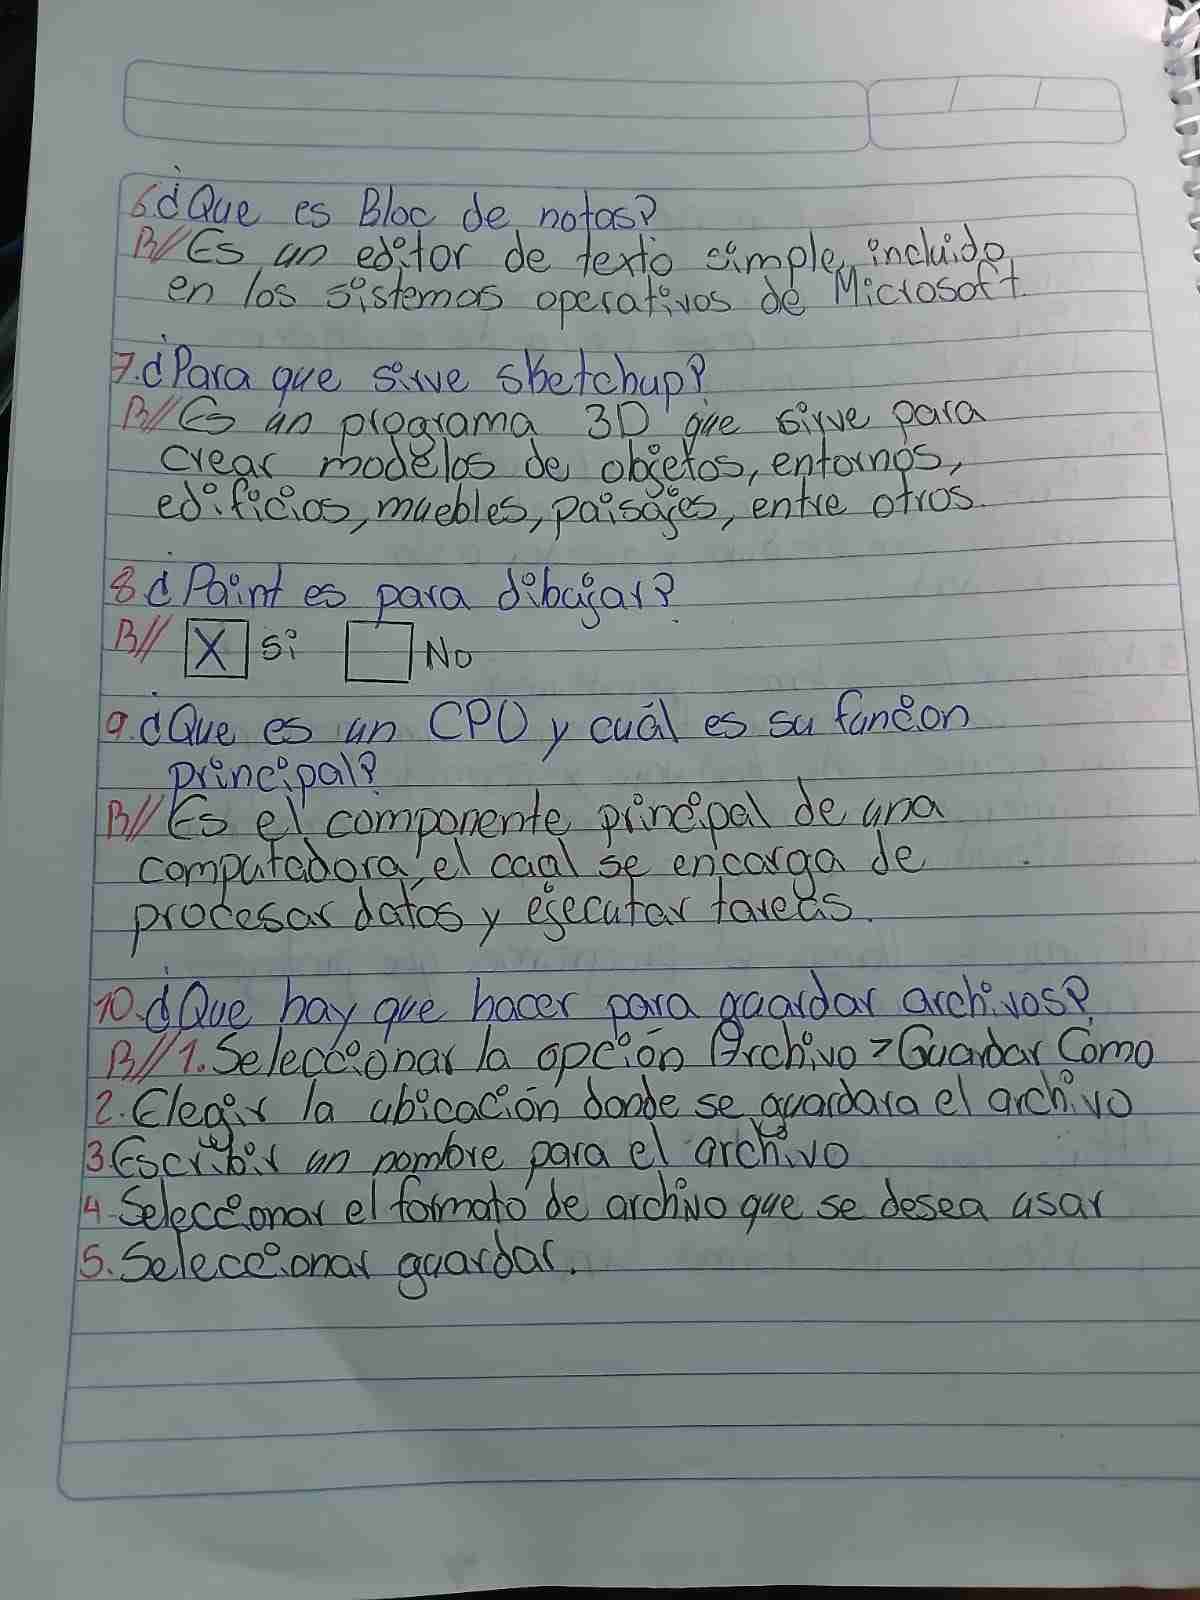 6.¿Que es Bloc de notas?
R// Es un editor de texto simple incluido
en los sistemas operativos de Microsoft
7.¿Para que sirve sketchup?
R// Es un programa 3D que sirve para
crear modelos de objetos, entornos,
edificios, muebles, paisajes, entre otros.
8.¿Paint es para dibujar?
R// X Si No
9.¿Que es un CPU y cuál es su funcion
principal?
R// Es el componente principal de una
computadora, el cual se encarga de
procesar datos y ejecutar tareas.
10.¿Que hay que hacer para guardar archivos?
R// 1. Seleccionar la opción Archivo > Guardar Como
2. Elegir la ubicación donde se guardara el archivo
3. Escribir un nombre para el archivo
4. Seleccionar el formato de archivo que se desea usar
5. Seleccionar guardar.